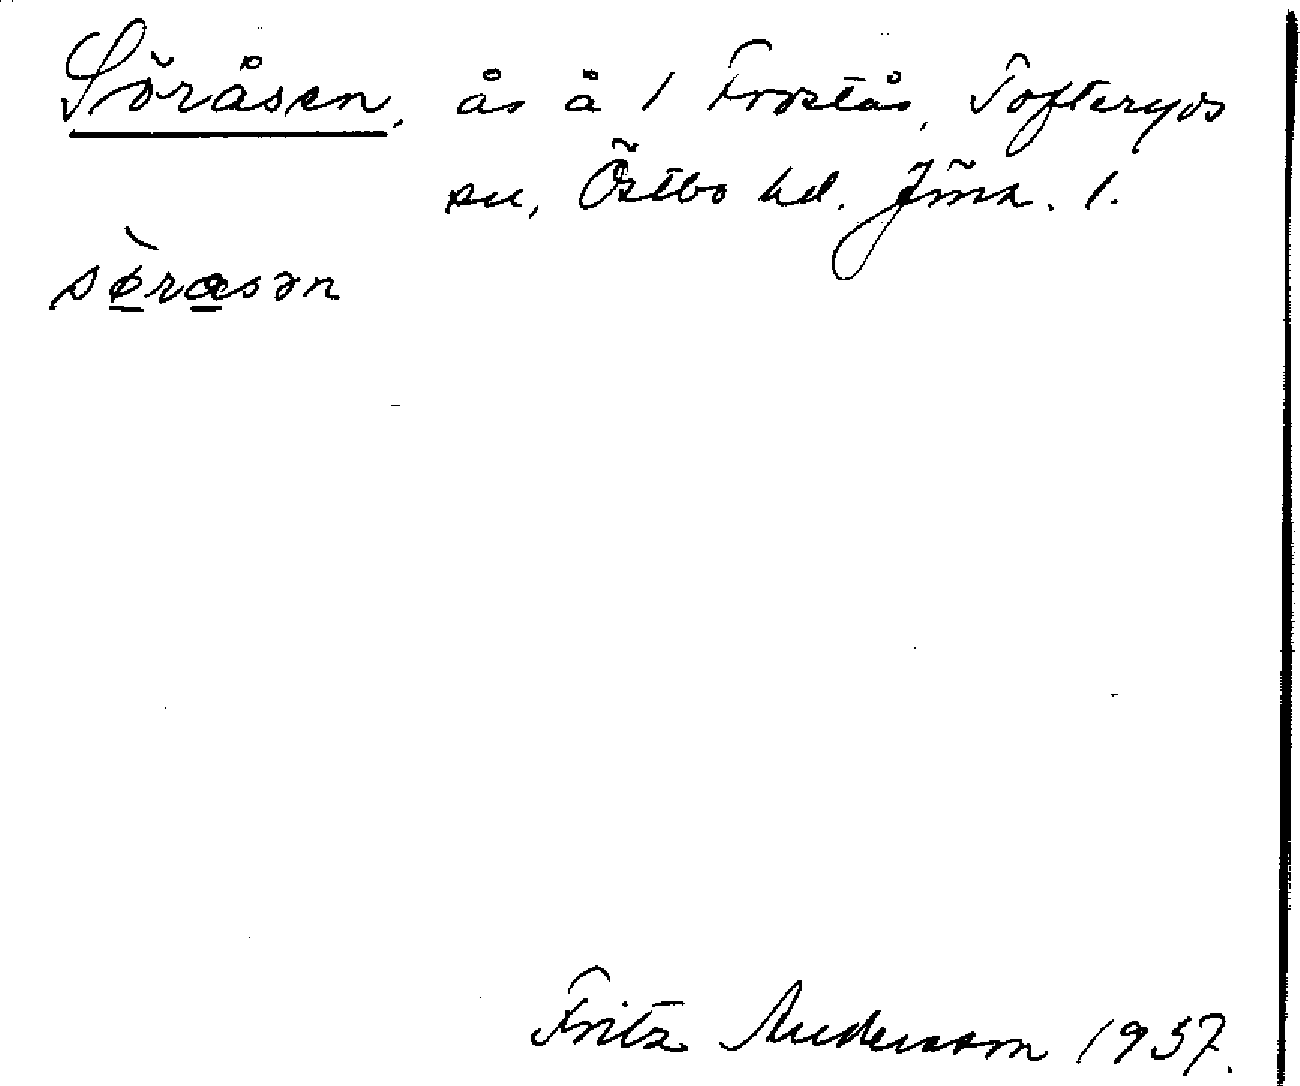 Söråsen, ås å 1 Frostås, Tofteryds
sn, Östbo hd. Jönk. l.
sø̀rɑsən
Fritz Andersson 1957.